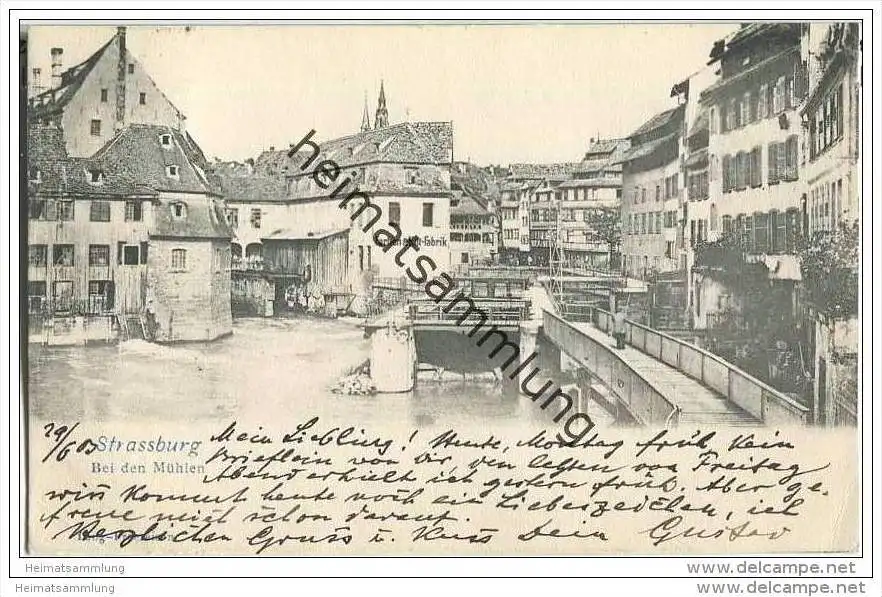 heimatsammlung
Eis-Fabrik
29/6 03
Strassburg
Bei den Mühlen
Mein Liebling! Heute, Montag früh, kein
Brieflein von Dir, den letzten von Freitag
Abend erhielt ich gestern früh. Aber ge-
wiss kommt heute noch ein Liebeszeichen, ich
freue mich schon darauf.
Herzlichen Gruss u. Kuss Dein Gustav
Heimatsammlung
www.delcampe.net
Heimatsammlung
www.delcampe.net